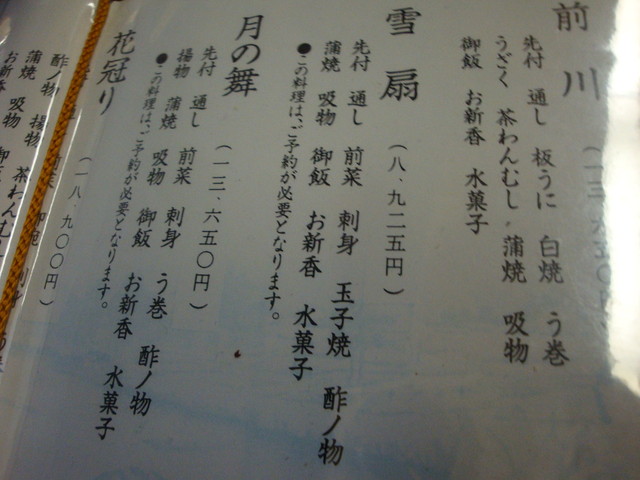 前川
（一三、六五〇円）
先付 通し 板うに 白焼 う巻
うざく 茶わんむし 蒲焼 吸物
御飯 お新香 水菓子
雪扇
（八、九二五円）
先付 通し 前菜 刺身 玉子焼 酢ノ物
蒲焼 吸物 御飯 お新香 水菓子
●この料理は、ご予約が必要となります。
月の舞
（一三、六五〇円）
先付 通し 前菜 刺身 う巻 酢ノ物
揚物 蒲焼 吸物 御飯 お新香 水菓子
●この料理は、ご予約が必要となります。
花冠り
（一八、九〇〇円）
前菜
酢ノ物 揚物 茶わんむし
蒲焼 吸物 御飯
お新香